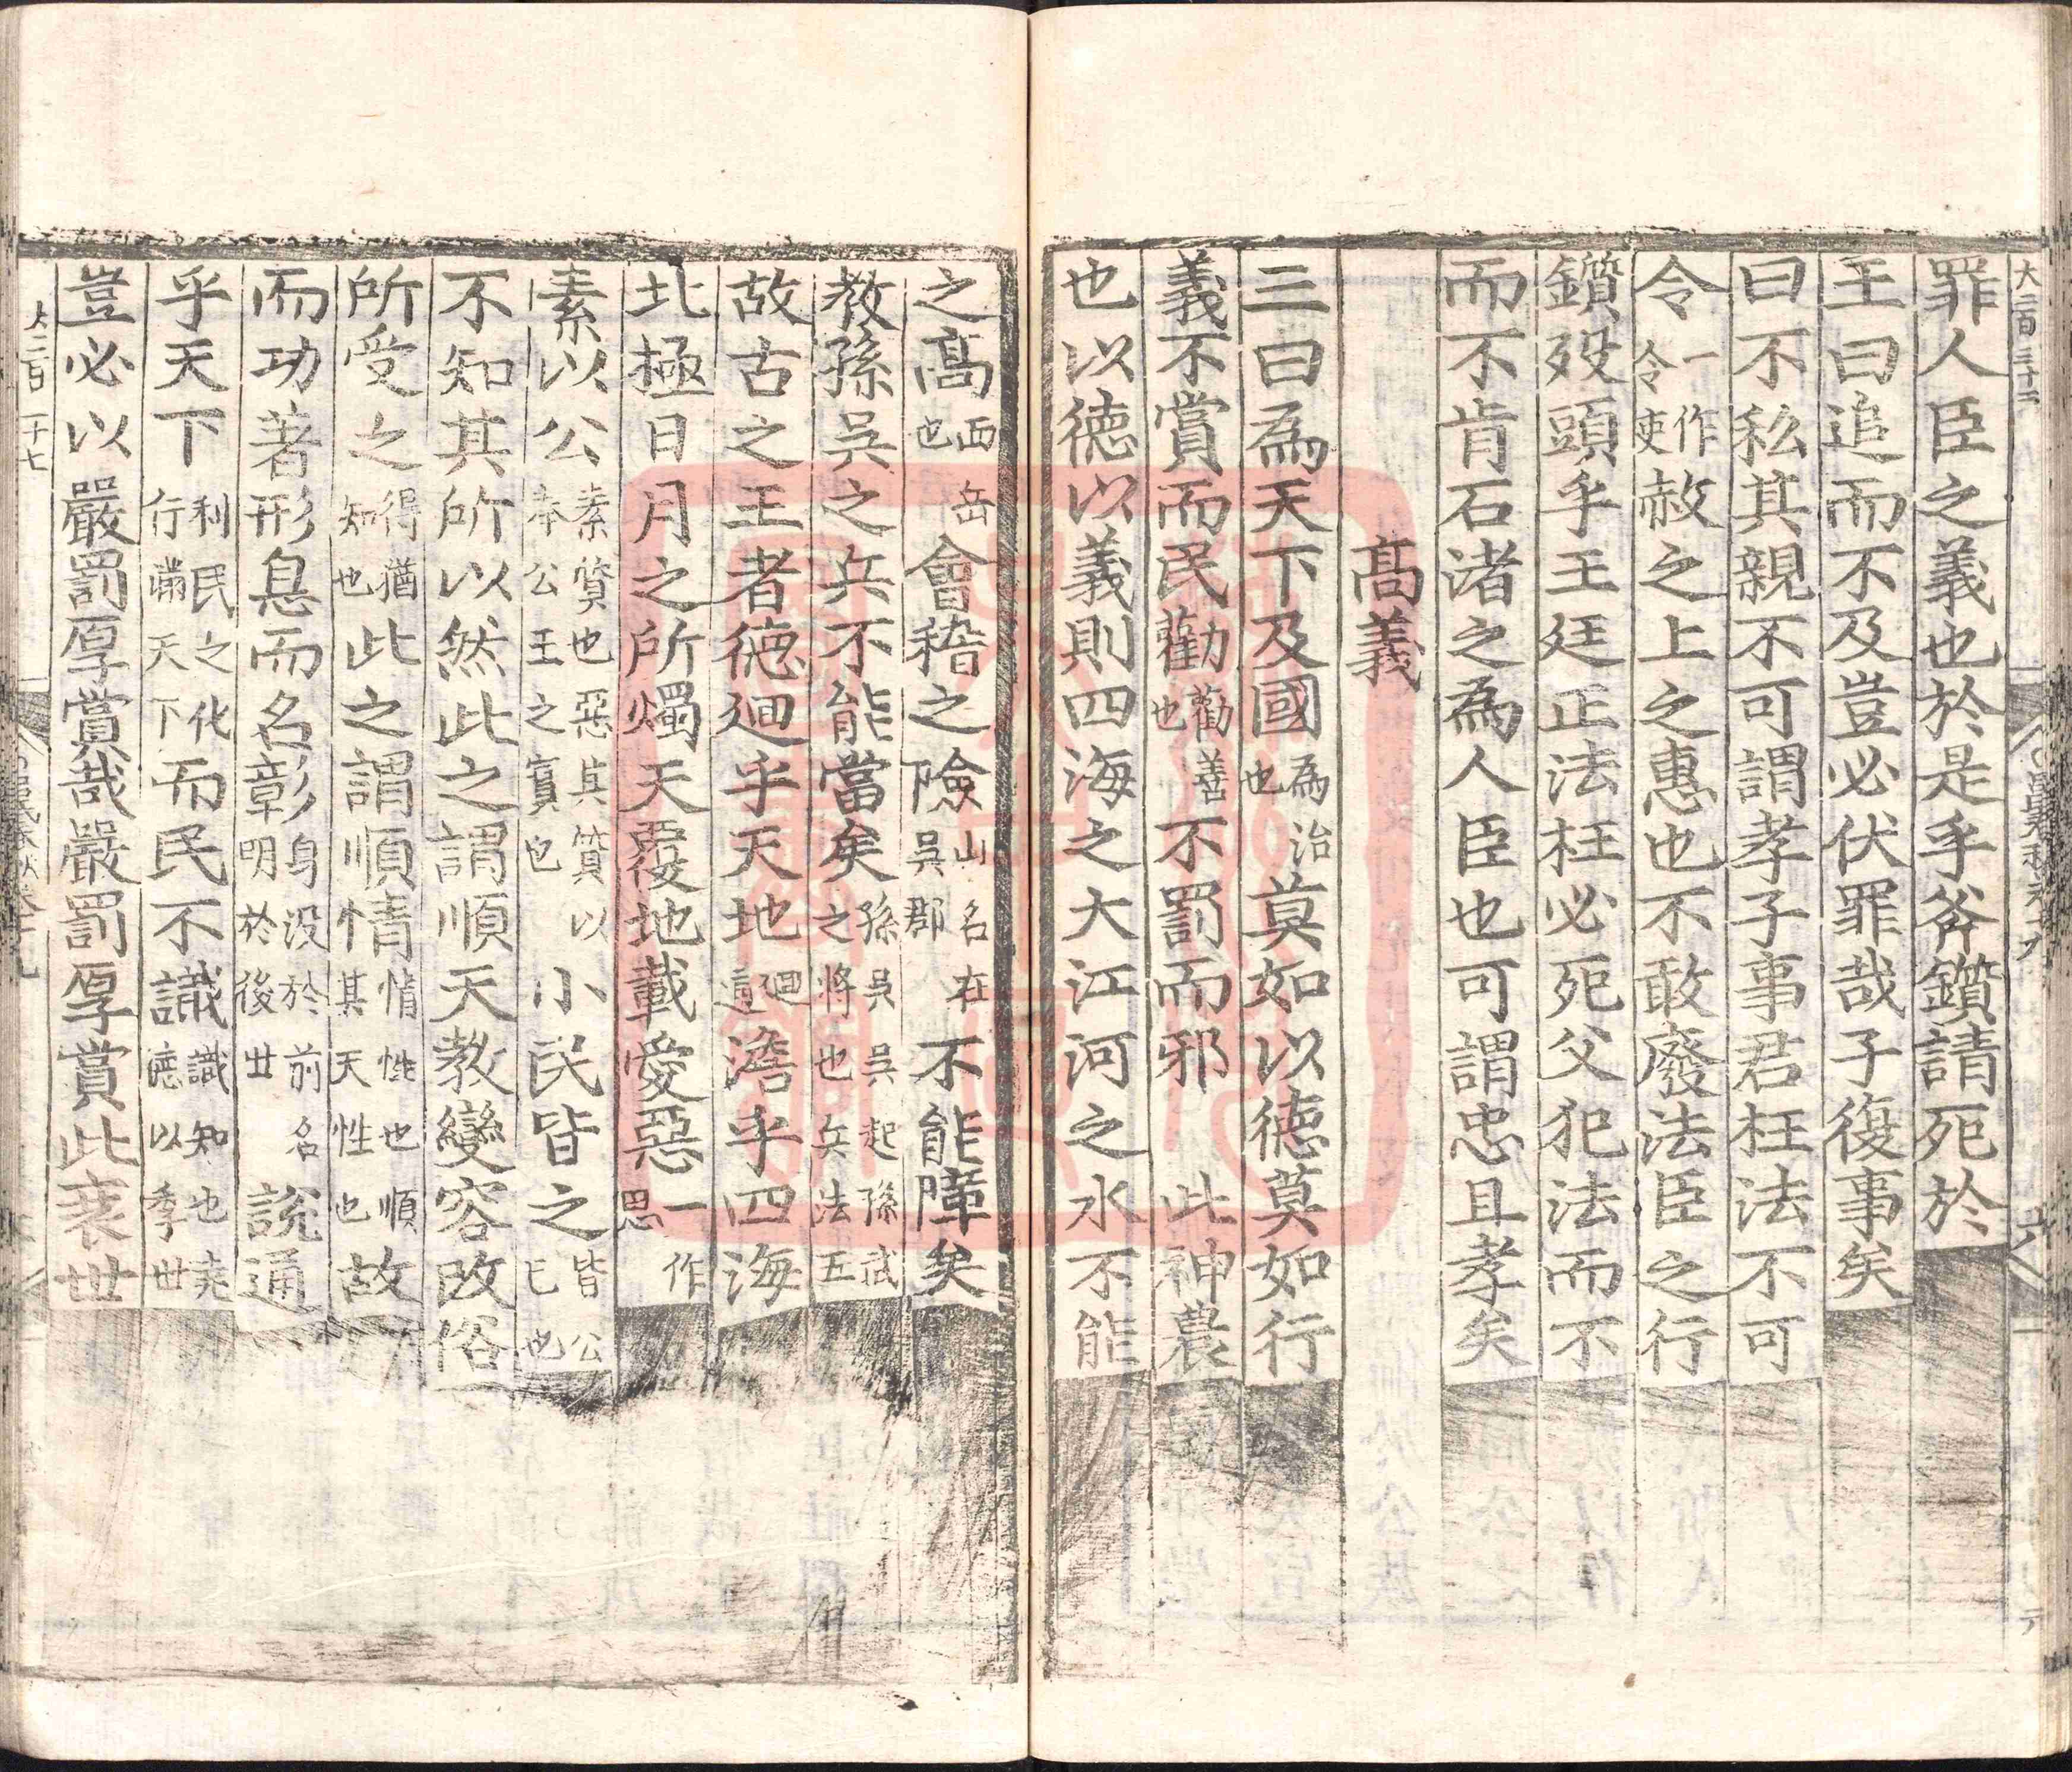 罪人臣之義也於是乎斧鑕請死於
王曰追而不及豈必伏罪哉子復事矣
曰不私其親不可謂孝子事君枉法不可
令一作令使赦之上之惠也不敢廢法臣之行
鑕歿頭乎王廷正法枉必死父犯法而不
而不肯石渚之為人臣也可謂忠且孝矣
高義
三曰為天下及國為治也莫如以德莫如行
義不賞而民勸勸善也不罰而邪此神農
也以德以義則四海之大江河之水不能
之高西岳也會稽之險山名在吳郡不能障矣
教孫吳之兵不能當矣孫吳吳起孫武之將也兵法五
故古之王者德迴乎天地迴澹乎四海
北極日月之所燭天覆地載愛惡一作思
素以公素質也惡其質以奉公王之實也小民皆之皆公己也
不知其所以然此之謂順天教變容改俗
所受之得猶知也此之謂順情情性也順其天性也故
而功著形息而名彰身没於前名明於後世說通
乎天下利民之化行滿天下而民不識識知也堯德以季世
豈必以嚴罰厚賞哉嚴罰厚賞此衰世